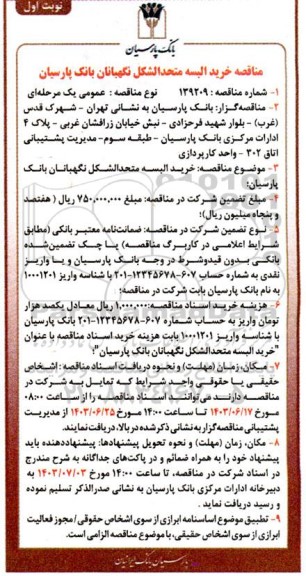 نوبت اول
بانک پارسیان
مناقصه خرید البسه متحدالشکل نگهبانان بانک پارسیان
۱- شماره مناقصه : ۱۳۹۲۰۹ نوع مناقصه : عمومی یک مرحله‌ای
۲- مناقصه‌گزار: بانک پارسیان به نشانی تهران - شهرک قدس
(غرب) - بلوار شهید فرحزادی - نبش خیابان زرافشان غربی - پلاک ۴
ادارات مرکزی بانک پارسیان - طبقه سوم- مدیریت پشتیبانی
اتاق ۳۰۲ - واحد کارپردازی
۳- موضوع مناقصه: خرید البسه متحدالشکل نگهبانان بانک
پارسیان؛
۴- مبلغ تضمین شرکت در مناقصه: مبلغ ۷۵۰,۰۰۰,۰۰۰ ریال ( هفتصد
و پنجاه میلیون ریال)؛
۵- نوع تضمین شرکت در مناقصه: ضمانت‌نامه معتبر بانکی (مطابق
شرایط اعلامی در کاربرگ مناقصه) یا چک تضمین‌شده
بانکی بدون قیدوشرط در وجه بانک پارسیان و یا واریز
نقدی به شماره حساب ۶۰۷-۱۲۳۴۵۶۷۸-۲۰۱ با شناسه واریز ۱۰۰۰۱۲۰۱
به نام بانک پارسیان بابت شرکت در مناقصه؛
۶- هزینه خرید اسناد مناقصه:۱,۰۰۰,۰۰۰ ریال معادل یکصد هزار
تومان واریز به حساب شماره ۶۰۷-۱۲۳۴۵۶۷۸-۲۰۱ بانک پارسیان
با شناسه واریز ۱۰۰۰۱۲۰۱ بابت هزینه خرید اسناد مناقصه با عنوان
"خرید البسه متحدالشکل نگهبانان بانک پارسیان"؛
۷- مکان، زمان (مهلت) و نحوه دریافت اسناد مناقصه: اشخاص
حقیقی یا حقوقی واجد شرایط که تمایل به شرکت در
مناقصه دارند می‌توانند اسناد مناقصه را از ساعت ۰۸:۰۰
مورخ ۱۴۰۳/۰۶/۱۷ تا ساعت ۱۴:۰۰ مورخ ۱۴۰۳/۰۶/۲۵ از مدیریت
پشتیبانی مناقصه‌گزار به نشانی ذکر شده در بالا، دریافت نمایند.
۸- مکان، زمان (مهلت) و نحوه تحویل پیشنهادها: پیشنهاددهنده باید
پیشنهاد خود را به همراه ضمائم و در پاکت‌های جداگانه به شرح مندرج
در اسناد شرکت در مناقصه، تا ساعت ۱۴:۰۰ مورخ ۱۴۰۳/۰۷/۰۳ به
دبیرخانه ادارات مرکزی بانک پارسیان به نشانی صدرالذکر تسلیم نموده
و رسید دریافت نماید .
۹- تطبیق موضوع اساسنامه ابرازی از سوی اشخاص حقوقی/ مجوز فعالیت
ابرازی از سوی اشخاص حقیقی، با موضوع مناقصه الزامی است.